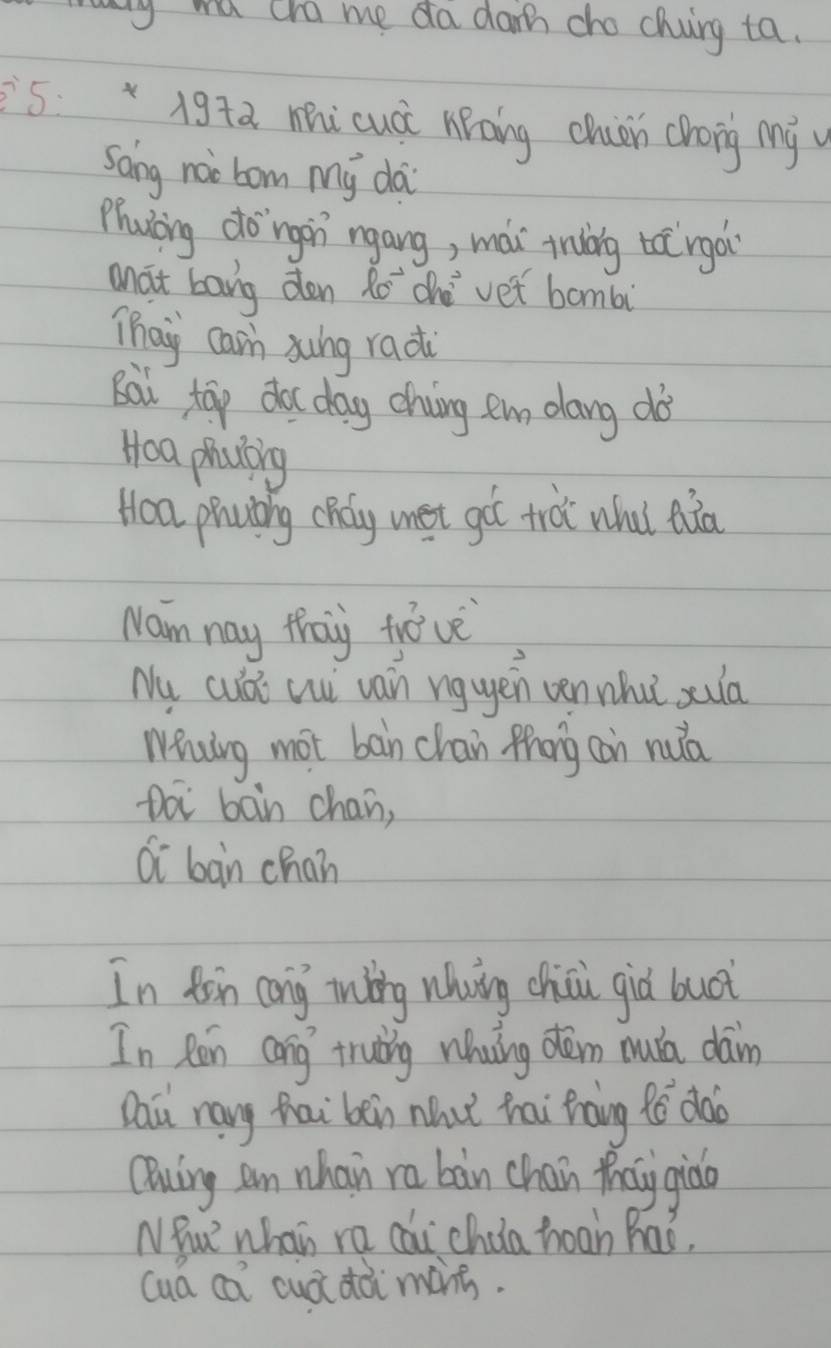 mà cha mẹ đã dành cho chúng ta.
5: * 1972 khi cuộc kháng chiến chống Mỹ
Sáng nào bom Mỹ dội
Phượng đổ ngổn ngang, mái trường tốc ngói
Mặt bảng đen lỗ chỗ vết bom bi
Thầy cầm súng ra đi
Bài tập đọc dạy chúng em dang dở
Hoa phượng
Hoa phượng cháy một góc trời như lửa
Năm nay thầy trở về
Nụ cười vui vẫn nguyên vẹn như xưa
Nhưng một bàn chân không còn nữa
Đôi bàn chân,
Ôi bàn chân
In lên cổng trường những chiều giá buốt
In lên cổng trường những đêm mưa dầm
Dấu nạng hai bên như hai hàng lỗ đáo
Chúng em nhận ra bàn chân thầy giáo
Như nhận ra cái chưa hoàn hảo.
Của cả cuộc đời mình.